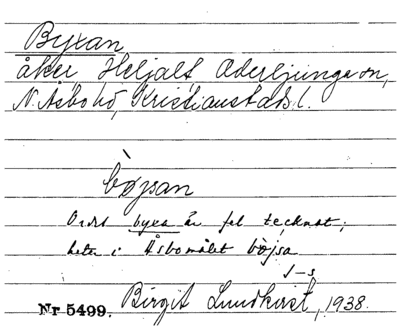 Byxan
åker Heljalt, Oderljunga sn,
N. Åsbo hd, Kristianstads l.
bøjsan
Ordet byxa är fel tecknat;
heter i Åsbomålet bòjsa
J-s
Nr 5499. Birgit Lundkvist, 1938.